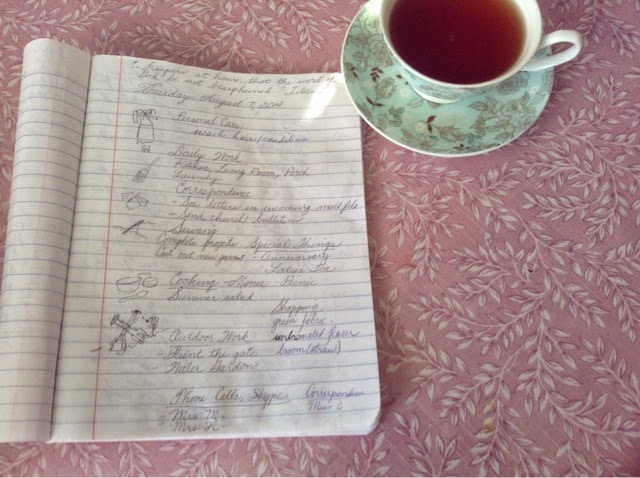 keepers at home, that the word of
God be not blasphemed" Titus 2
Thursday, August 7, 2014
Personal Care:
wash hair/condition
Daily Work
Kitchen, Living Room, Porch
Laundry
Correspondence
- See letters in incoming mail file
- Send church bulletin
Sewing
Complete projects Special Things
Cut out new - Anniversary
Ladies Tea
Cooking - Menu - Picnic
Summer salad
Shopping
green fabric
Outdoor Work unbromated flour
- Paint the gate broom (straw)
- Water Garden
Phone Calls, Skype Correspondence
- Mrs. M. Miss C
- Mrs. N